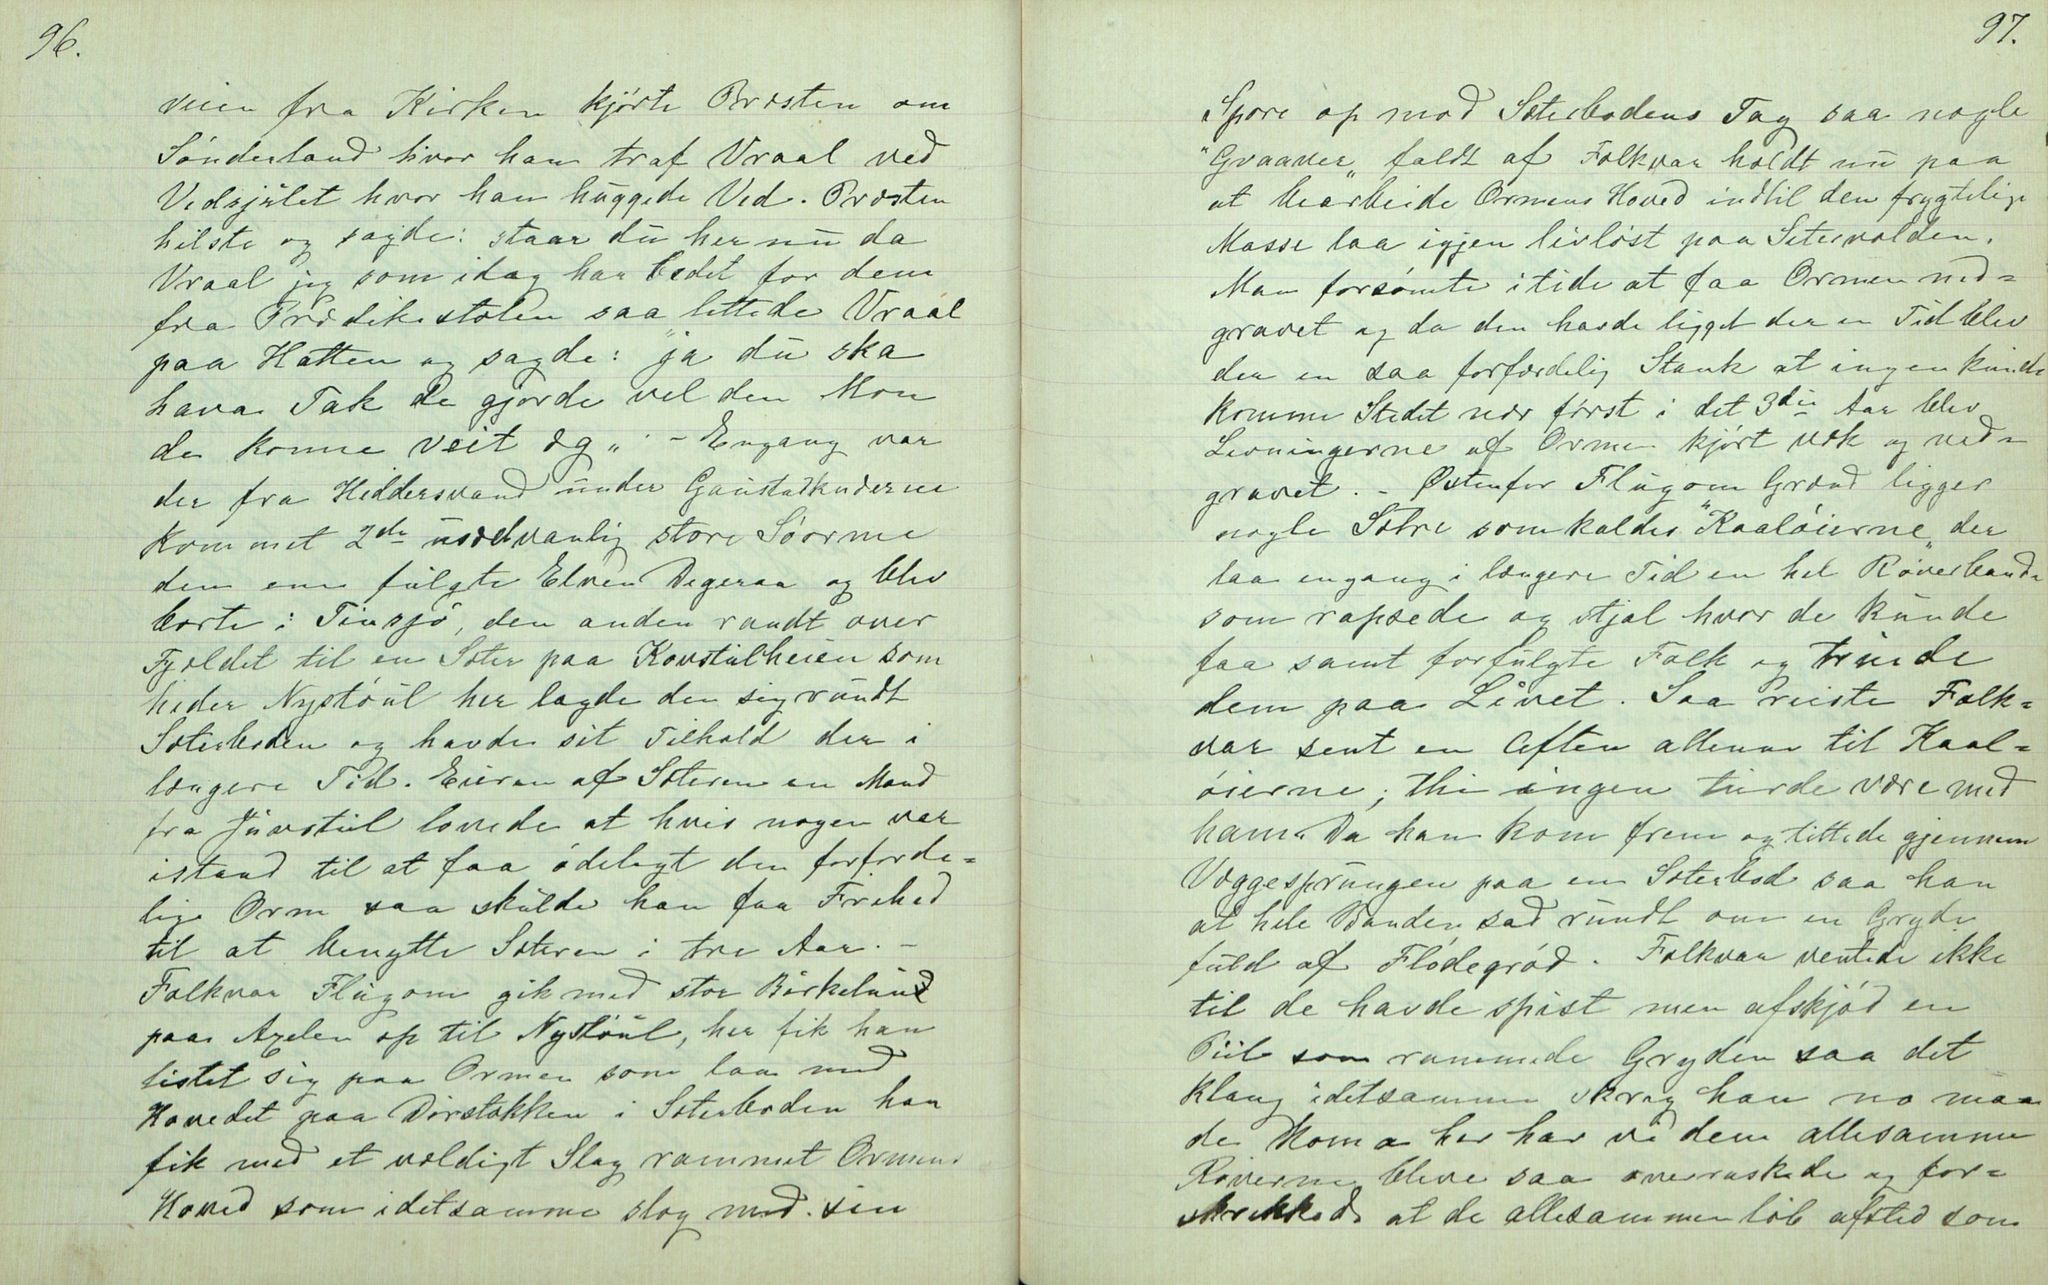 96.
veien fra Kirken kjørte Presten om
Sønderland hvor han traf Vraal ved
Vedsjulet hvor han huggede Ved. Presten
hilste og sagde: staar du her nu da
Vraal jeg som idag har bedet for dem
fra Prædikestolen saa lettede Vraal
paa Hatten og sagde: "ja du ska
hava Tak De gjorde vel den Mon
de konne veit og„ - Engang var
der fra Hiddersvand under Gaustadknuderne
kommet 2de usædvanlig store Søorme
den ene fulgte Elven Digeraa og blev
borte i Tinsjø, den anden randt over
Fjeldet til en Sæter paa Kovstulheien som
heder Nystøül her lagde den sig rundt
Sæterboden og havde sit Tilhold der i
længere Tid. Eieren af Sæteren en Mand
fra Juvstul lovede at hvis nogen var
istand til at faa ødelagt den forfærde-
lige Orm saa skulde han faa Frihed
til at benytte Sæteren i tre Aar. -
Falkvar Flugom gik med stor Birkelund
paa Axelen op til Nystøül, her fik han
listet sig paa Ormen som laa med
Hovedet paa Dørstokken i Sæterboden han
fik med et vældigt Slag rammet Ormens
Hoved som idetsamme slog med sin
97.
Spore op mod Sæterbodens Tag saa nogle
"Graaver„ faldt af Falkvar holdt nu paa
at bearbeide Ormens Hoved indtil den frygtelige
Masse laa igjen livløst paa Sætervolden.
Man forsømte itide at faa Ormen ned-
gravet og da den havde ligget der en Tid blev
der en saa forfærdelig Stank at ingen kunde
komme Stedet nær først i det 3die Aar blev
Levningerne af Ormen kjørt væk og ned-
gravet. - Østenfor Flugom Grænd ligger
nogle Sætre som kaldes "Kaaløierne„ der
laa engang i længere Tid en hel Røverbande
som rapsede og stjal hvor de kunde
faa samt forfulgte Folk og truede
dem paa Livet. Saa reiste Falk-
var sent en Aften allene til Kaal-
øierne; thi ingen turde være med
ham. Da han kom frem og tittede gjennem
Væggesprungen paa en Sæterbod saa han
at hele Banden sad rundt om en Gryde
fuld af Flødegrød. Falkvar ventede ikke
til de havde spist men afskjød en
Piil som rammede Gryden saa det
klang idetsamme skreg han no maa
de koma her har vi dem allesamme
Røverne bleve saa overraskede og for-
skrekkede at de allesammen løb afsted som